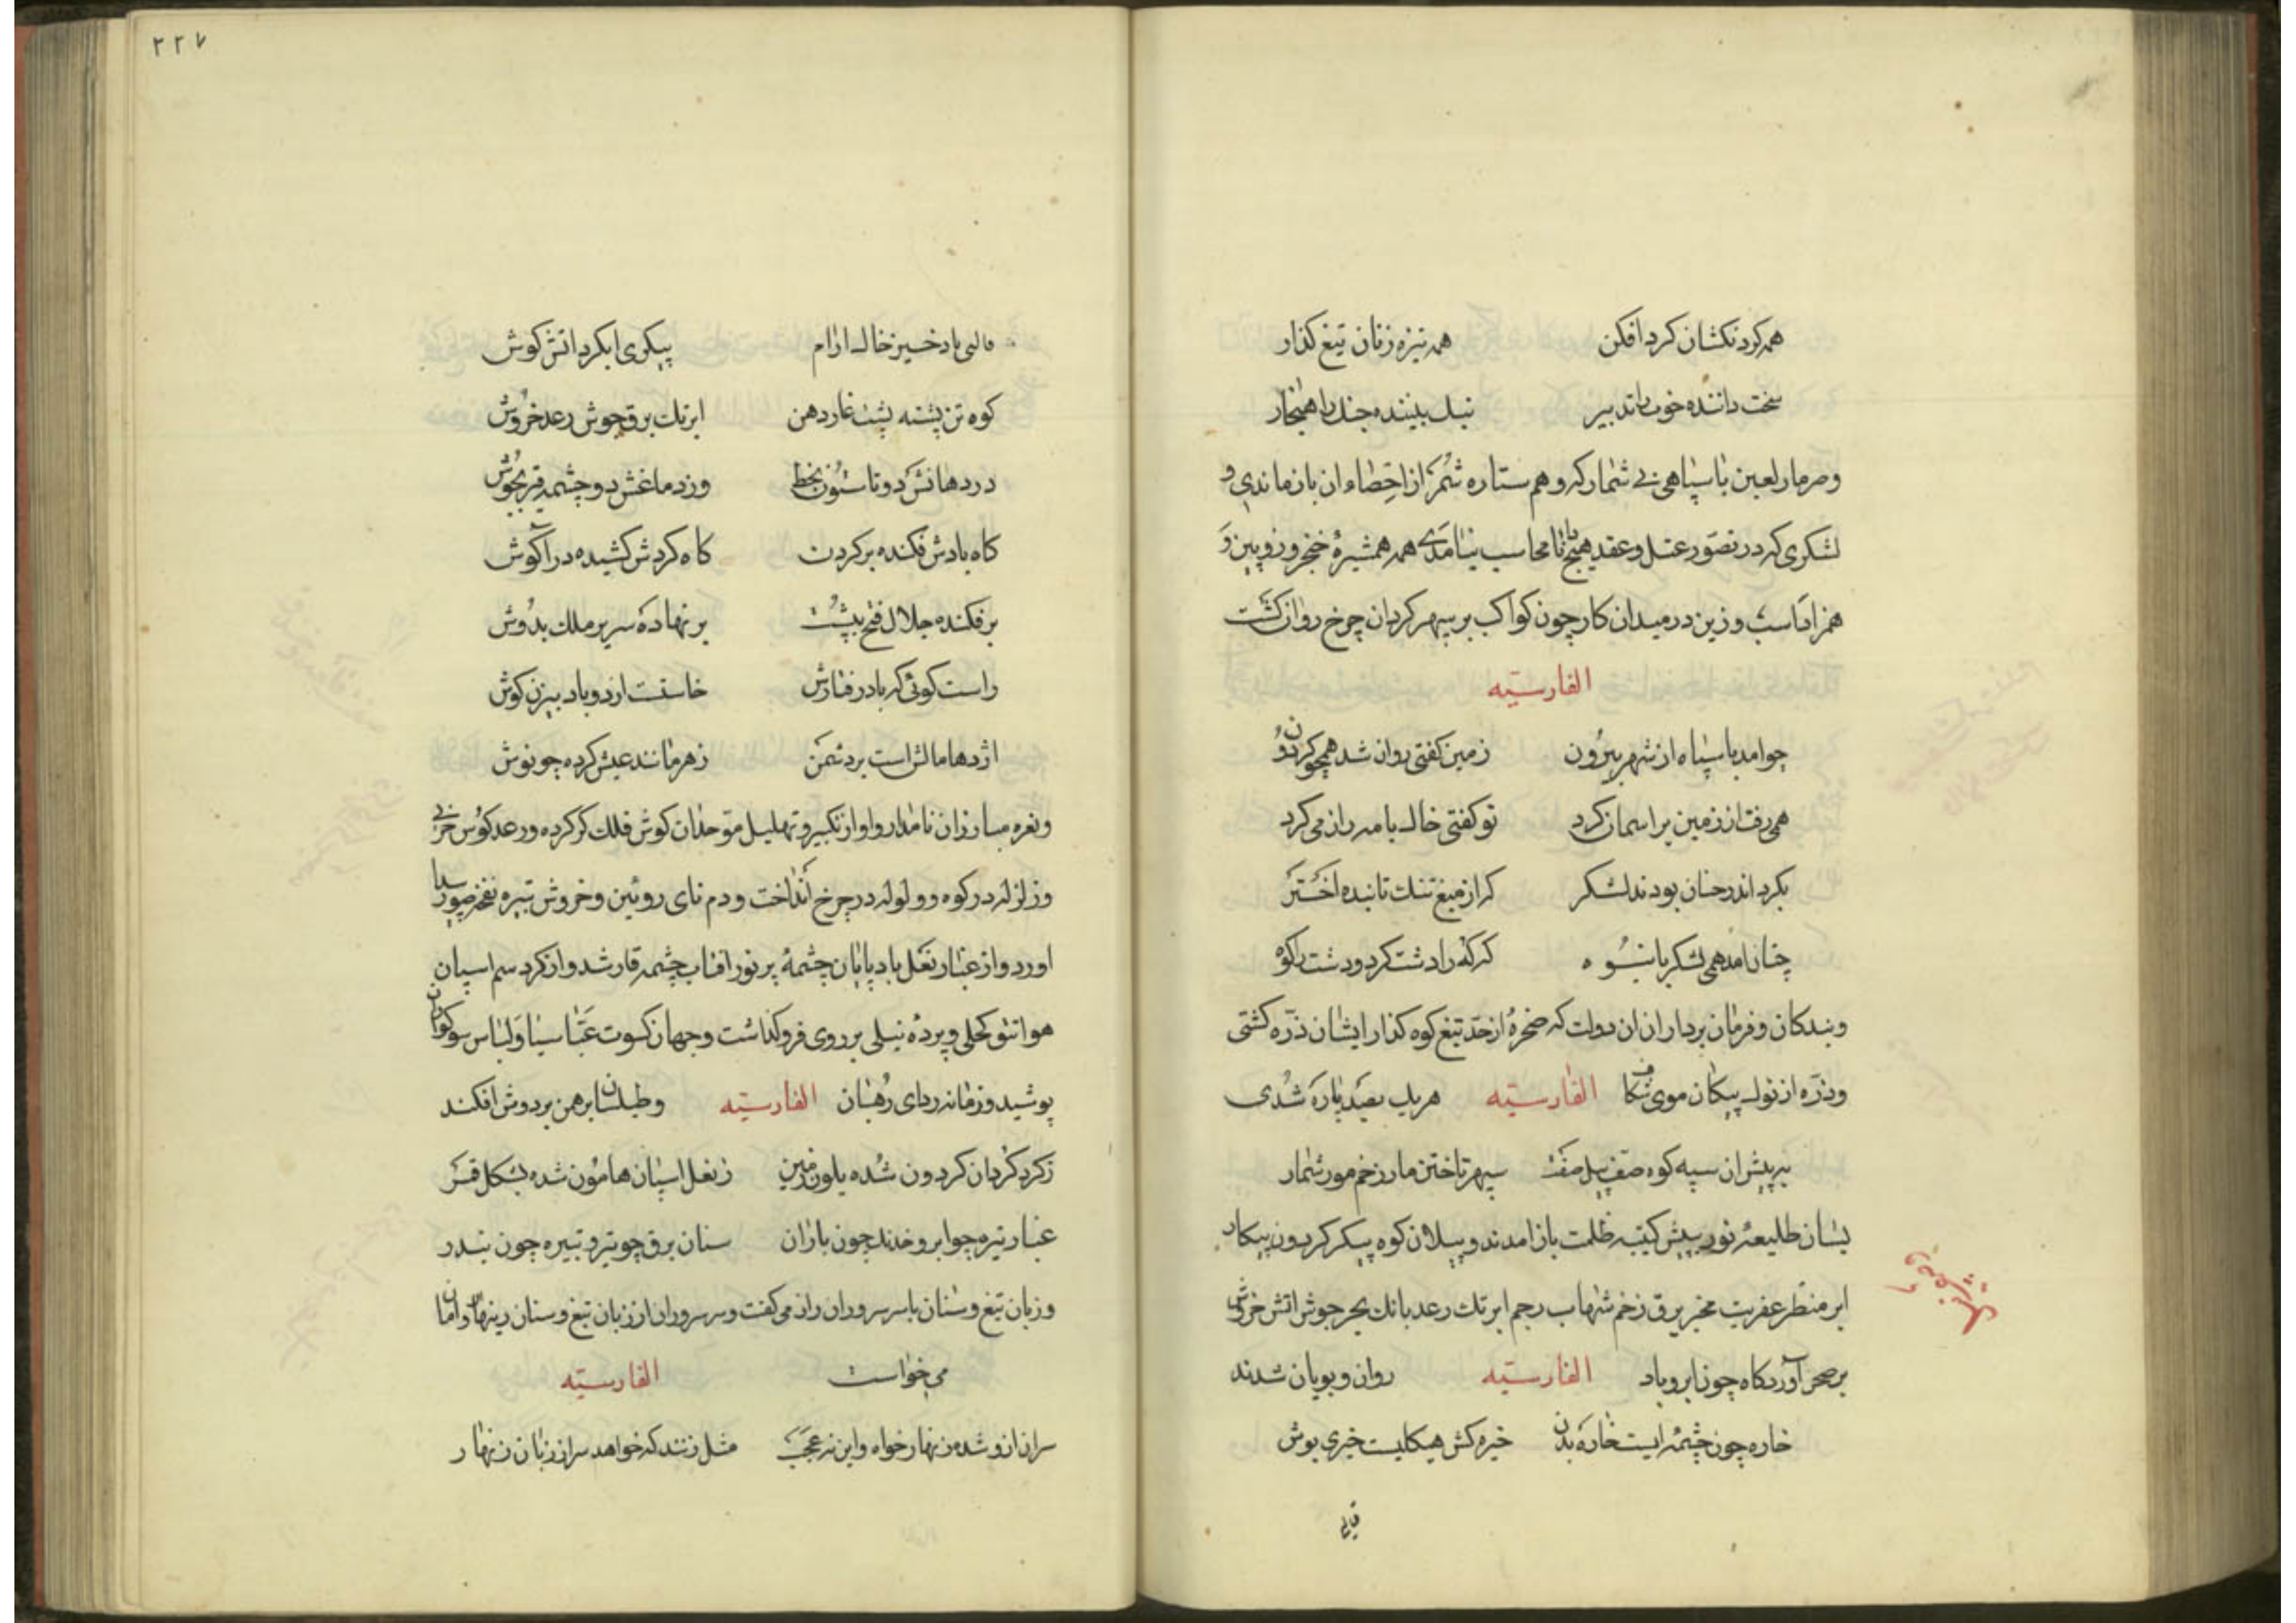 همه کردنکشان کرد افکن همه نیزه زنان تیغ کذار
سخت داننده خوب را تدبیر نیک بیننده جنک را هنجار
و مرمار لعین با سپاهی بی شمار که وهم ستاره شمر از احصاء ان باز ماندی و
لشکری که در تصور عقل و عقد هیچ محاسب نیامدی همه همشیرۀ خنجر و زوپین و
همزاد اسب و زین در میدان کار چون کواکب بر سپهر کردان چرخ روان کشت
الفارسیّه
چو امد با سپاه از شهر بیرون زمین کفتی روان شد همچو کردون
همی رفت از زمین بر اسمان کرد تو کفتی خاک با مه راز می کرد
بکرد اندر چنان بودند لشکر که از میغ تنک تابنده اختر
چنان امد همی لشکر بانبوه که که را دشت کرد و دشت را کوه
و بندکان و فرمان برداران ان دولت که صخرۀ از حد تیغ کوه کذار ایشان ذره کشتی
و ذره از نوک پیکان موی شکاف الفارسیّه هریک بصد پاره شدی
به پیش ان سپه کوه صف پیل صفت سپهر تاختن مار زخم مور شمار
بسان طلیعۀ نور پیش کتیبه ظلمت باز امدند و پیلان کوه پیکر کردون پیکار
ابر منظر عفریت مخبر برق زخم شهاب رجم ابر تک رعد بانک بحر جوش اتش خروش
بر صحن آوردکاه چون ابر و باد الفارسیّه روان و پویان شدند
خاره چون چشمه ایست خاره بدن خیره کش هیکلیست خیری پوش
قالبی
۲۲۷
قالبی باد خیز خاک ارام پیکری ابکرد اتش کوش
کوه تن پشته پشت غار دهن ابر تک برق جوش رعد خروش
در دهانش دو تا ستون وز دماغش دو چشمه قیر بجوش
کاه بادش فکنده بر کردن کاه کردش کشیده در آکوش
بر فکنده جلال فتح بپشت بر نهاده سریر ملک بدوش
راست کوئی که باد رفتارش خاستت از دو باد بیزن کوش
اژدها مالش است بر دشمن زهر مانند عیش کرده چو نوش
و نعره مبارزان نامدار و اواز تکبیر و تهلیل موحدان کوش فلک کر کرده و رعد کوس حربی
و زلزله در کوه و ولوله در چرخ انداخت و دم نای روئین و خروش تبیره نفخ صور پیدا
اورد و از غبار نعل باد پایان چشمۀ پر نور افتاب چشمه قار شد و از کرد سم اسپان
هوا تتق کحلی و پردۀ نیلی بر روی فرو کذاشت و جهان کسوت عباسیان و لباس سوکواران
پوشید و زمانه ردای رهبان الفارسیّه و طیلسان برهمن بر دوش افکند
ز کرد کردان کردون شده بلون زمین ز نعل اسپان هامون شده بشکل قمر
غبار تیره چو ابر و خدنک چون باران سنان برق چو تیر و تبیره چون تندر
و زبان تیغ و سنان با سر سروران راز می کفت و سر سروران از زبان تیغ و سنان زینهار و امان
می خواست الفارسیّه
سران ازو شده زنهار خواه و این نه عجب مثل زنند که خواهد سر از زبان زنهار